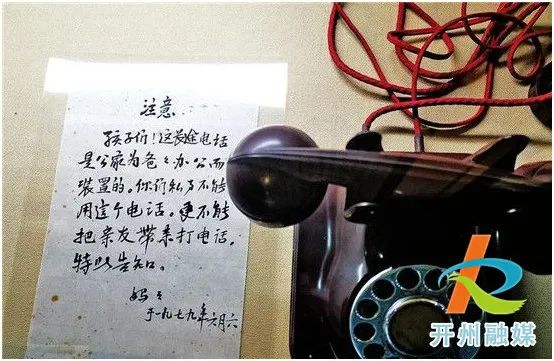 注意
孩子们!这长途电话
是公家为爸々办公而
装置的。你们私事不能
用这个电话。更不能
把亲友带来打电话。
特此告知。
妈々
于一九七九年六月六
开州融媒